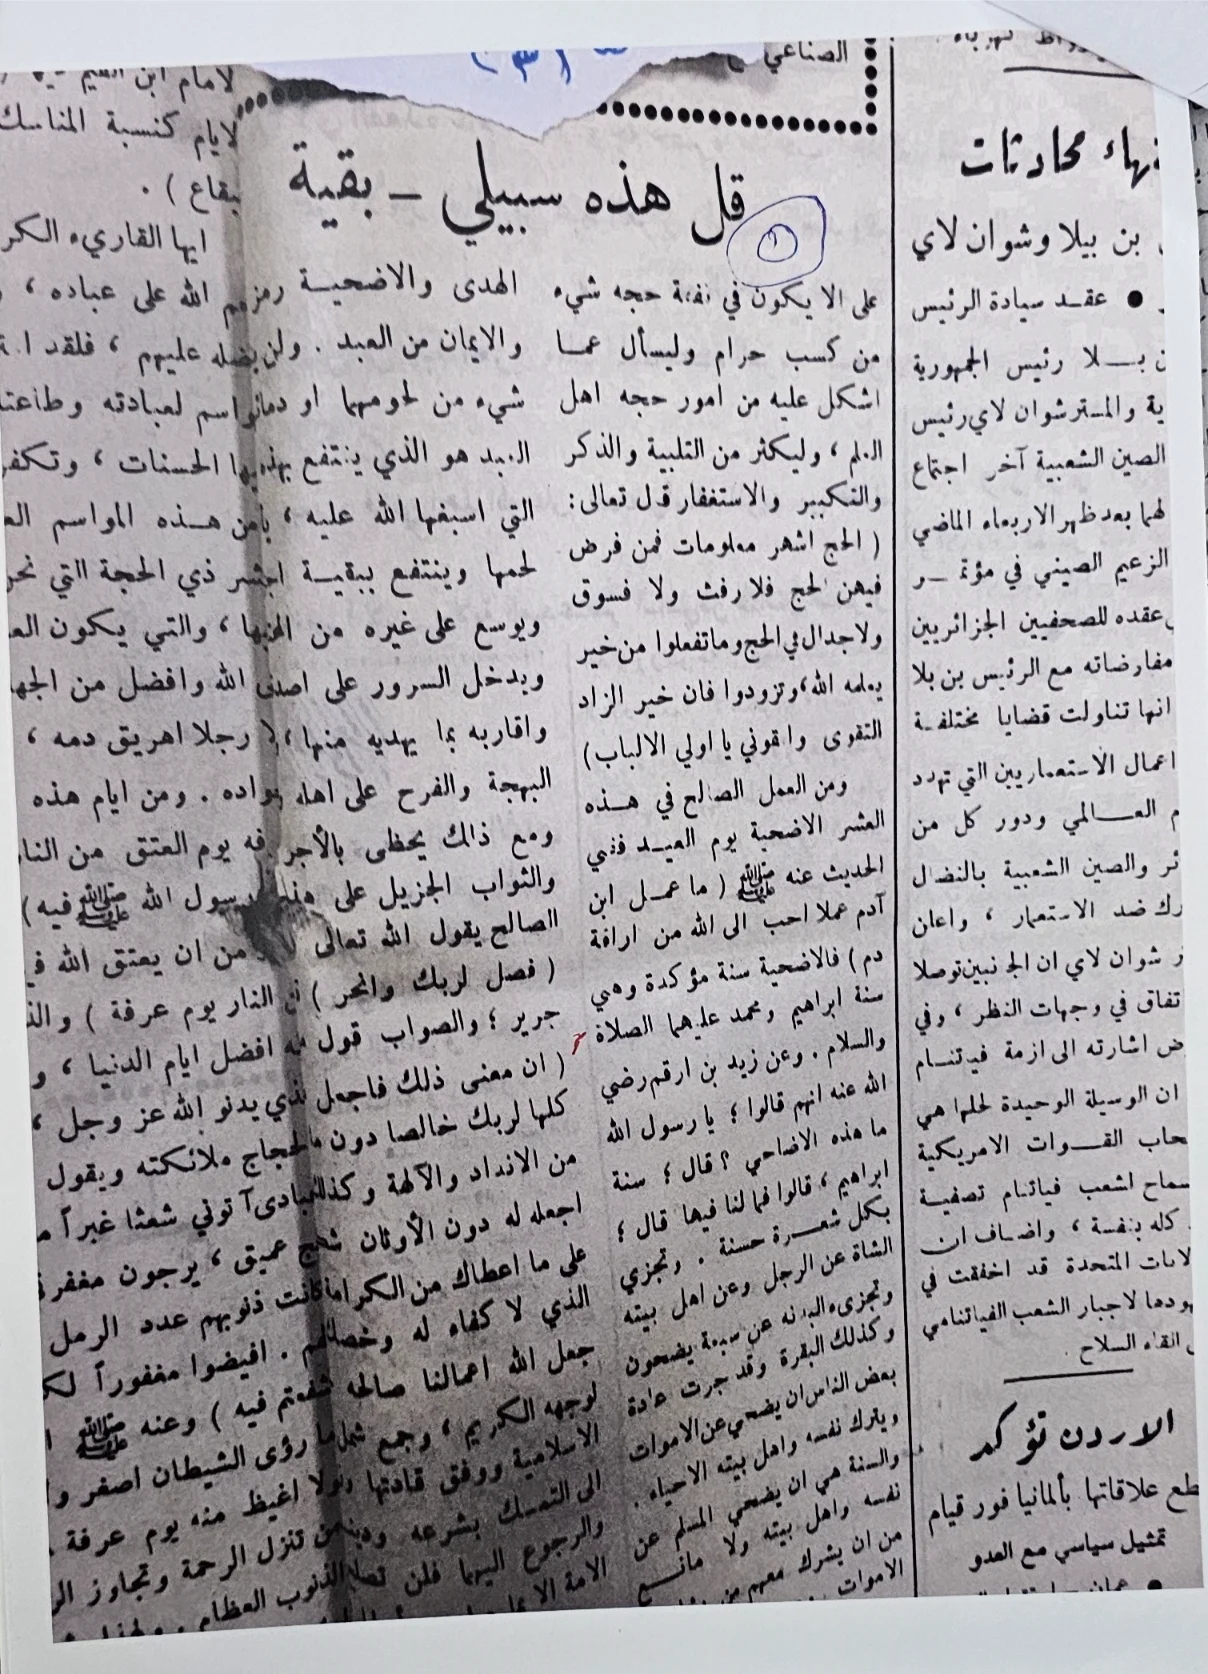 الصناعي
نهاء محادثات
بن بيلا وشوان لاي
● عقد سيادة الرئيس
بلا رئيس الجمهورية
ية والمستر شوان لاي رئيس
الصين الشعبية آخر اجتماع
لهما بعد ظهر الاربعاء الماضي
الزعيم الصيني في مؤتمر
عقده للصحفيين الجزائريين
مفاوضاته مع الرئيس بن بلا
انها تناولت قضايا مختلفة
اعمال الاستعماريين التي تهدد
م العالمي ودور كل من
ئر والصين الشعبية بالنضال
رك ضد الاستعمار ، واعلن
ر شوان لاي ان الجانبين توصلا
تفاق في وجهات النظر ، وفي
ض اشارته الى ازمة فيتنام
ان الوسيلة الوحيدة لحلها هي
حاب القوات الامريكية
سماح لشعب فياتنام تصفية
كله بنفسة ، واضاف ان
لايات المتحدة قد اخفقت في
هودها لاجبار الشعب الفياتنامي
القاء السلاح .
الاردن تؤكد
طع علاقاتها بألمانيا فور قيام
تمثيل سياسي مع العدو
قل هذه سبيلي – بقية
على الا يكون في نفقة حجه شيء
من كسب حرام وليسأل عما
اشكل عليه من امور حجه اهل
العلم ، وليكثر من التلبية والذكر
والتكبير والاستغفار قال تعالى :
( الحج اشهر معلومات فمن فرض
فيهن الحج فلا رفث ولا فسوق
ولا جدال في الحج وما تفعلوا من خير
يعلمه الله ، وتزودوا فان خير الزاد
التقوى واتقوني يا اولي الالباب )
ومن العمل الصالح في هذه
العشر الاضحية يوم العيد ففي
الحديث عنه ﷺ ( ما عمل ابن
آدم عملا احب الى الله من اراقة
دم ) فالاضحية سنة مؤكدة وهي
سنة ابراهيم ومحمد عليهما الصلاة
والسلام . وعن زيد بن ارقم رضي
الله عنه انهم قالوا ؛ يا رسول الله
ما هذه الاضاحي ؟ قال ؛ سنة
ابراهيم ، قالوا فما لنا فيها قال ؛
بكل شعرة حسنة . وتجزي
الشاة عن الرجل وعن اهل بيته
وتجزىء البدنه عن سبعة يضحون
وكذلك البقرة وقد جرت عادة
بعض الناس ان يضحي عن الاموات
ويترك نفسه واهل بيته الاحياء .
والسنة هي ان يضحي المسلم عن
نفسه واهل بيته ولا مانع
من ان يشرك معهم من
الاموات
الهدى والاضحية
والايمان من العبد . ولن
شيء من لحومهما او دمائ
العبد هو الذي ينتفع بهذه
التي اسبغها الله عليه ،
لحمها وينتفع ببقية
ويوسع على غيره من
ويدخل السرور على اصدق
واقاربه بما يهديه منها ،
البهجة والفرح على اهله
ومع ذلك يحظى بالأجر
والثواب الجزيل على هذا
الصالح يقول الله تعالى
( فصل لربك وانحر )
جرير ؛ والصواب قول
( ان معنى ذلك فاجعل
كلها لربك خالصا دون
من الانداد والآلهة وكذلك
اجعله له دون الأوثان
على ما اعطاك من الكرامة
الذي لا كفاء له وخصك
جعل الله اعمالنا صالحة
لوجهه الكريم ، وجمع شمل
الاسلامية ووفق قادتها
الى التمسك بشرعه ودينه
والرجوع اليهما فلن
الامة الا
لايام كنسبة المناسك
بقاع ) .
ايها القاريء الكر
الله على عباده ،
بفضله عليهم ، فلقد
اسم لعبادته وطاعت
الحسنات ، وتكفر
من هذه المواسم
عشر ذي الحجة التي نحن
والتي يكون
الله وافضل من الجه
رجلا اهريق دمه ،
جواده . ومن ايام هذه
يوم العتق من النار
رسول الله ﷺ فيه )
من ان يعتق الله
النار يوم عرفة )
افضل ايام الدنيا ،
يدنو الله عز وجل ،
الحجاج ملائكته ويقول
عبادى آتوني شعثا غبراً
فج عميق ، يرجون مغفر
كانت ذنوبهم عدد الرمل
. افيضوا مغفوراً لك
شفعتم فيه ) وعنه ﷺ
ما رؤى الشيطان اصفر
ولا اغيظ منه يوم عرفة
من تنزل الرحمة وتجاوز
الذنوب العظام .